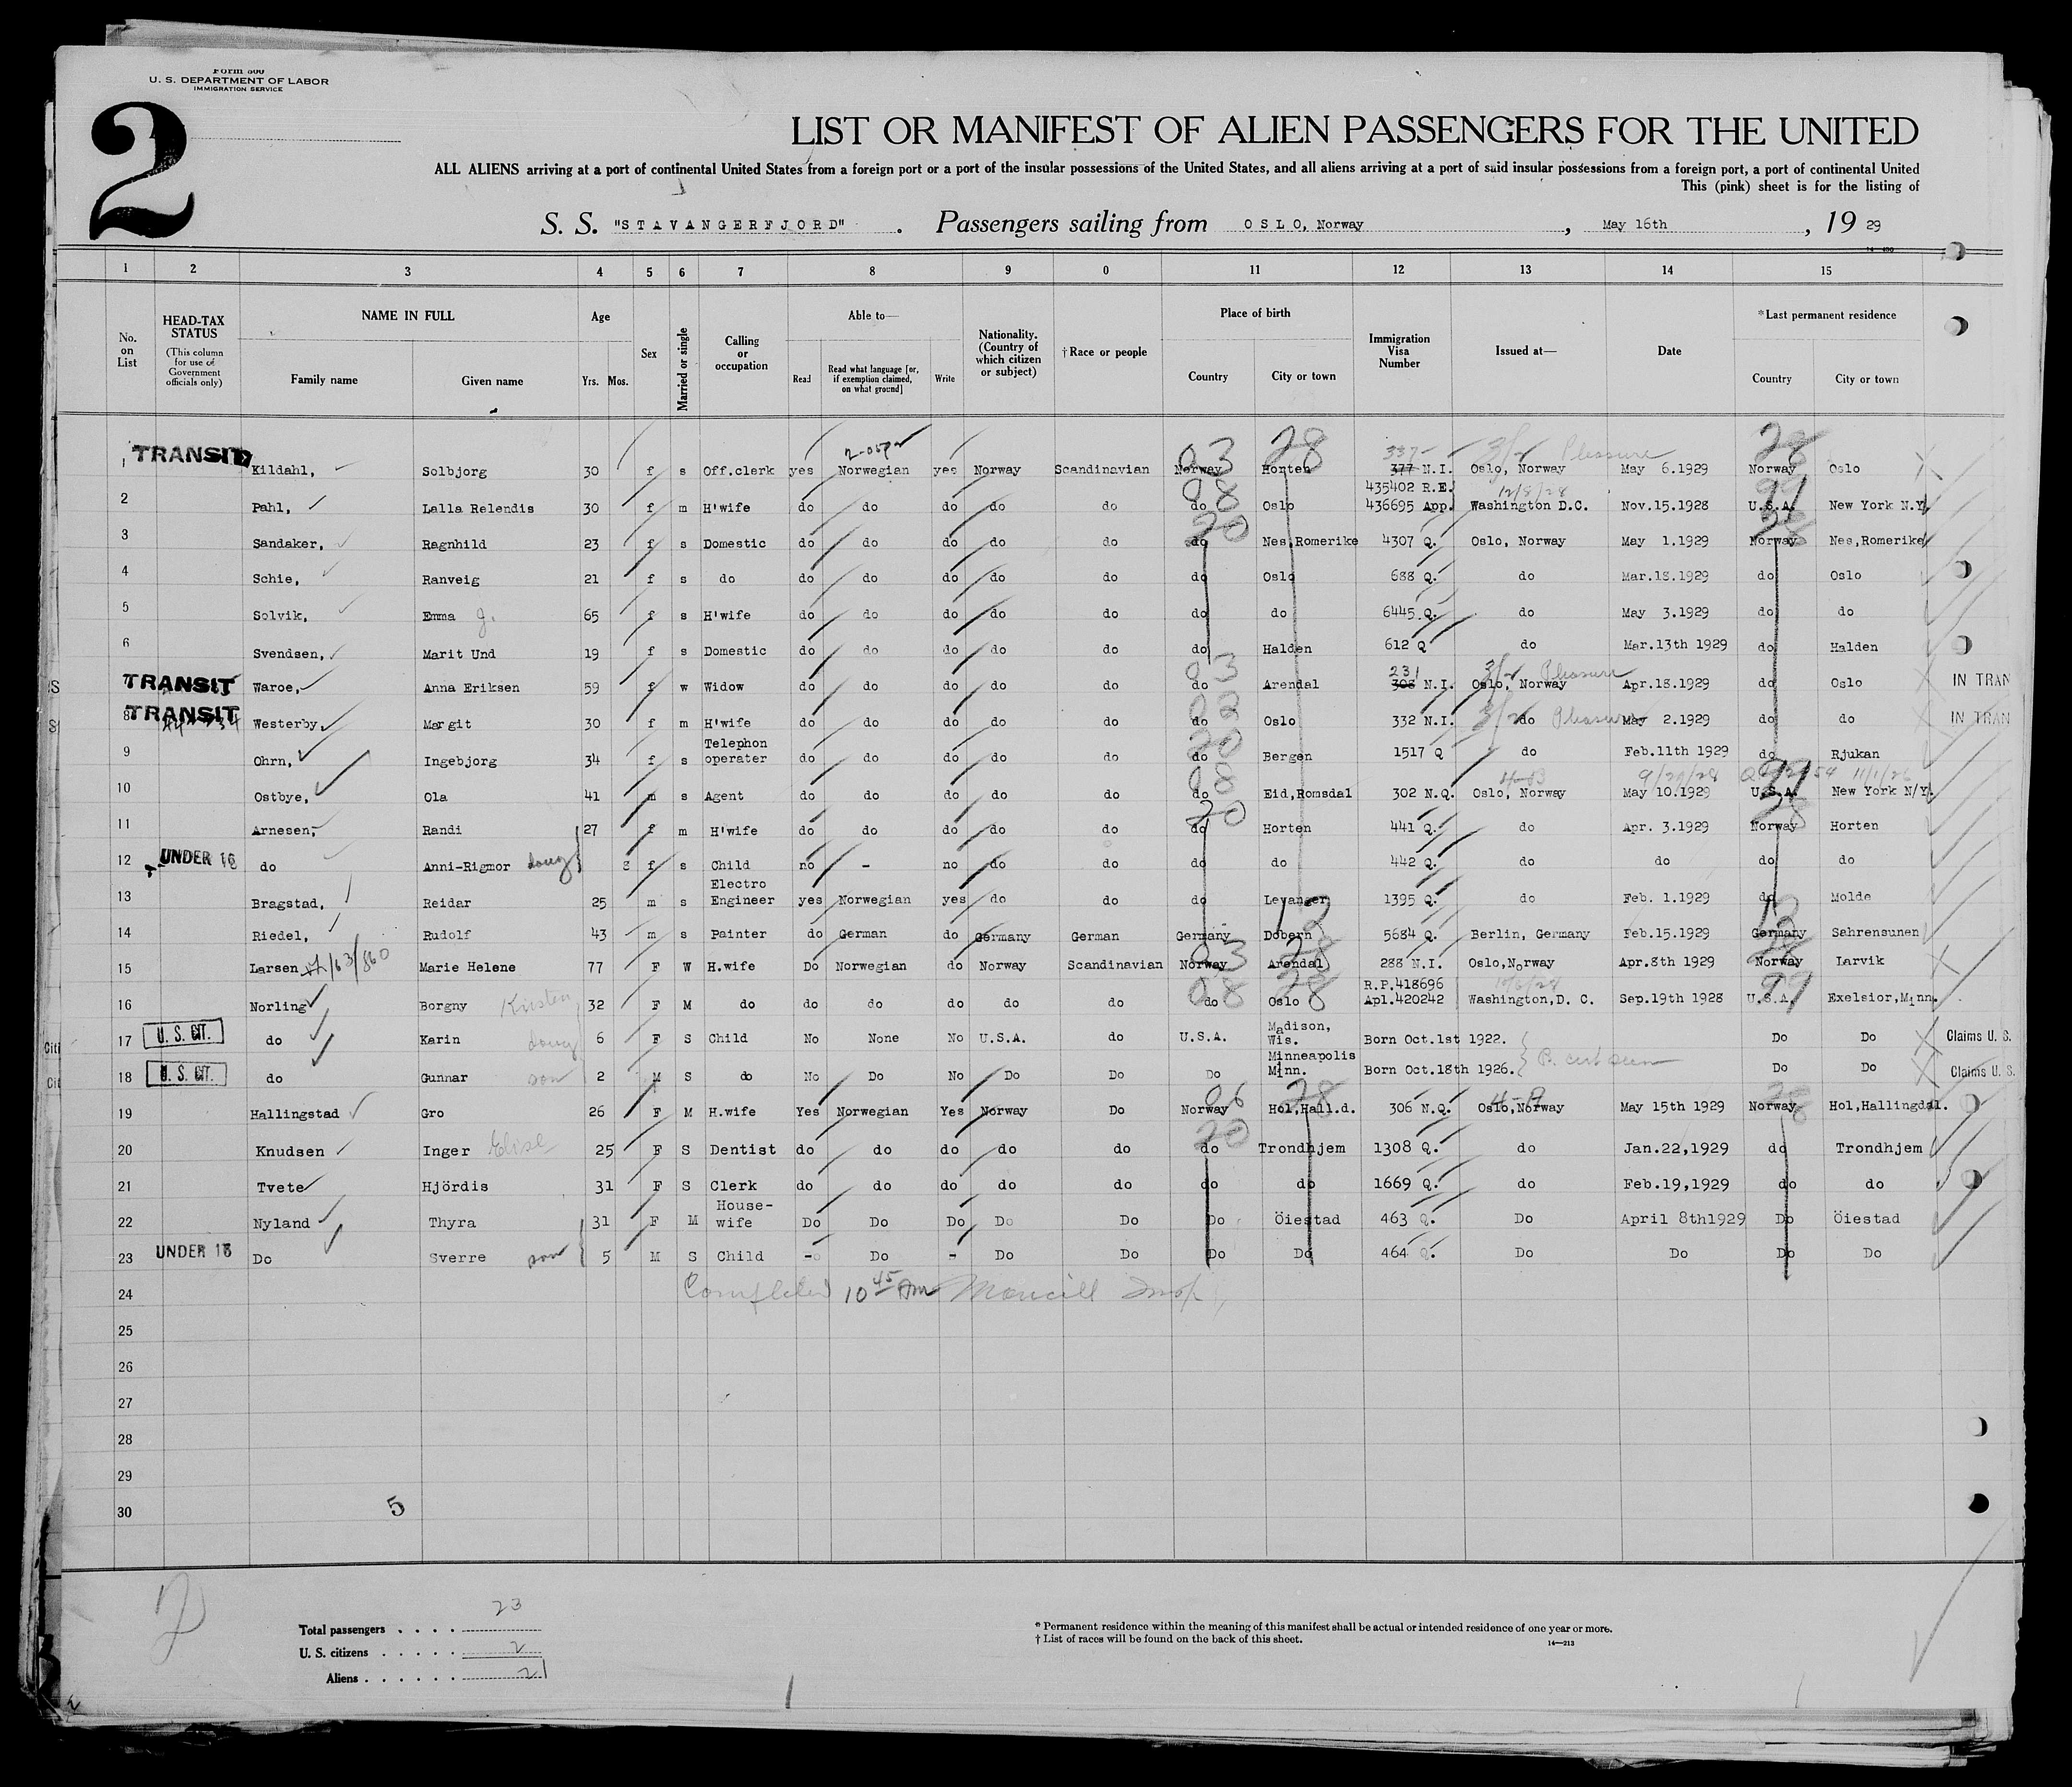 Form 500
U. S. DEPARTMENT OF LABOR
IMMIGRATION SERVICE
2
LIST OR MANIFEST OF ALIEN PASSENGERS FOR THE UNITED
ALL ALIENS arriving at a port of continental United States from a foreign port or a port of the insular possessions of the United States, and all aliens arriving at a port of said insular possessions from a foreign port, a port of continental United
This (pink) sheet is for the listing of
S. S. "STAVANGERFJORD" . Passengers sailing from OSLO, Norway , May 16th , 19 29
1 2 3 4 5 6 7 8 9 0 11 12 13 14 15
No. on List
HEAD-TAX STATUS (This column for use of Government officials only)
NAME IN FULL Family name Given name
Age Yrs. Mos.
Sex
Married or single
Calling or occupation
Able to— Read Read what language [or, if exemption claimed, on what ground] Write
Nationality. (Country of which citizen or subject)
†Race or people
Place of birth Country City or town
Immigration Visa Number
Issued at—
Date
*Last permanent residence Country City or town
1 TRANSIT Kildahl, Solbjorg 30 f s Off.clerk yes Norwegian yes Norway Scandinavian Norway 03 Horten 28 337 377 N.I. Oslo, Norway 3/2 Pleasure May 6.1929 Norway 28 Oslo
2 Pahl, Lalla Relendis 30 f m H'wife do do do do do do 08 Oslo 435402 R.E. 436695 App. Washington D.C. 12/8/28 Nov.15.1928 U.S.A. New York N.Y.
3 Sandaker, Ragnhild 23 f s Domestic do do do do do do 20 Nes,Romerike 4307 Q. Oslo, Norway May 1.1929 Norway 28 Nes,Romerike
4 Schie, Ranveig 21 f s do do do do do do do Oslo 688 Q. do Mar.18.1929 do Oslo
5 Solvik, Emma J. 65 f s H'wife do do do do do do do 6445 Q. do May 3.1929 do do
6 Svendsen, Marit Und 19 f s Domestic do do do do do do Halden 612 Q do Mar.13th 1929 do Halden
TRANSIT Waroe, Anna Eriksen 59 f w Widow do do do do do do 03 Arendal 231 308 N.I. Oslo, Norway 3/2 Pleasure Apr.18.1929 do Oslo IN TRAN
8 TRANSIT Westerby, Margit 30 f m H'wife do do do do do do 02 Oslo 332 N.I. do 3/2 Pleasure May 2.1929 do do IN TRAN
9 Ohrn, Ingebjorg 34 f s Telephon operater do do do do do do 20 Bergen 1517 Q do Feb.11th 1929 do Rjukan
10 Ostbye, Ola 41 m s Agent do do do do do do 08 Eid,Romsdal 302 N.Q. Oslo, Norway May 10.1929 U.S.A. New York N/Y.
11 Arnesen, Randi 27 f m H'wife do do do do do do 20 Horten 441 Q. do Apr. 3.1929 Norway 28 Horten
12 UNDER 16 do Anni-Rigmor daug 8 f s Child no - no do do do do 442 Q. do do do do
13 Bragstad, Reidar 25 m s Electro Engineer yes Norwegian yes do do do Levanger 1395 Q. do Feb. 1.1929 do Molde
14 Riedel, Rudolf 43 m s Painter do German do Germany German Germany Dobern 12 5684 Q. Berlin, Germany Feb.15.1929 Germany 12 Sahrensunen
15 Larsen Marie Helene 77 F W H.wife Do Norwegian do Norway Scandinavian Norway 03 Arendal 28 288 N.I. Oslo,Norway Apr.8th 1929 Norway 28 Larvik
16 Norling Borgny Kirsten 32 F M do do do do do do do 08 Oslo 28 R.P.418696 Apl.420242 Washington,D. C. Sep.19th 1928 U.S.A. 99 Exelsior,Minn.
17 U. S. CIT. do Karin daug 6 F S Child No None No U.S.A. do U.S.A. Madison, Wis. Born Oct.1st 1922. Do Do Claims U. S.
18 U. S. CIT. do Gunnar son 2 M S do No Do No Do Do Do Minneapolis Minn. Born Oct.18th 1926. B. cert seen Do Do Claims U. S.
19 Hallingstad Gro 26 F M H.wife Yes Norwegian Yes Norway Do Norway 06 Hol,Hall.d. 28 306 N.Q. Oslo,Norway May 15th 1929 Norway 28 Hol,Hallingdal.
20 Knudsen Inger Elise 25 F S Dentist do do do do do do 20 Trondhjem 1308 Q. do Jan.22,1929 do Trondhjem
21 Tvete Hjördis 31 F S Clerk do do do do do do do 1669 Q. do Feb.19,1929 do do
22 Nyland Thyra 31 F M House-wife Do Do Do Do Do Do Öiestad 463 Q. Do April 8th1929 Do Öiestad
23 UNDER 16 Do Sverre son 5 M S Child - Do - Do Do Do Do 464 Q. Do Do Do Do
24 Completed 10 45 Am
25
26
27
28
29
30
5
Total passengers . . . . 23
U. S. citizens . . . . . 2
Aliens . . . . . . 21
* Permanent residence within the meaning of this manifest shall be actual or intended residence of one year or more.
† List of races will be found on the back of this sheet.
14—213